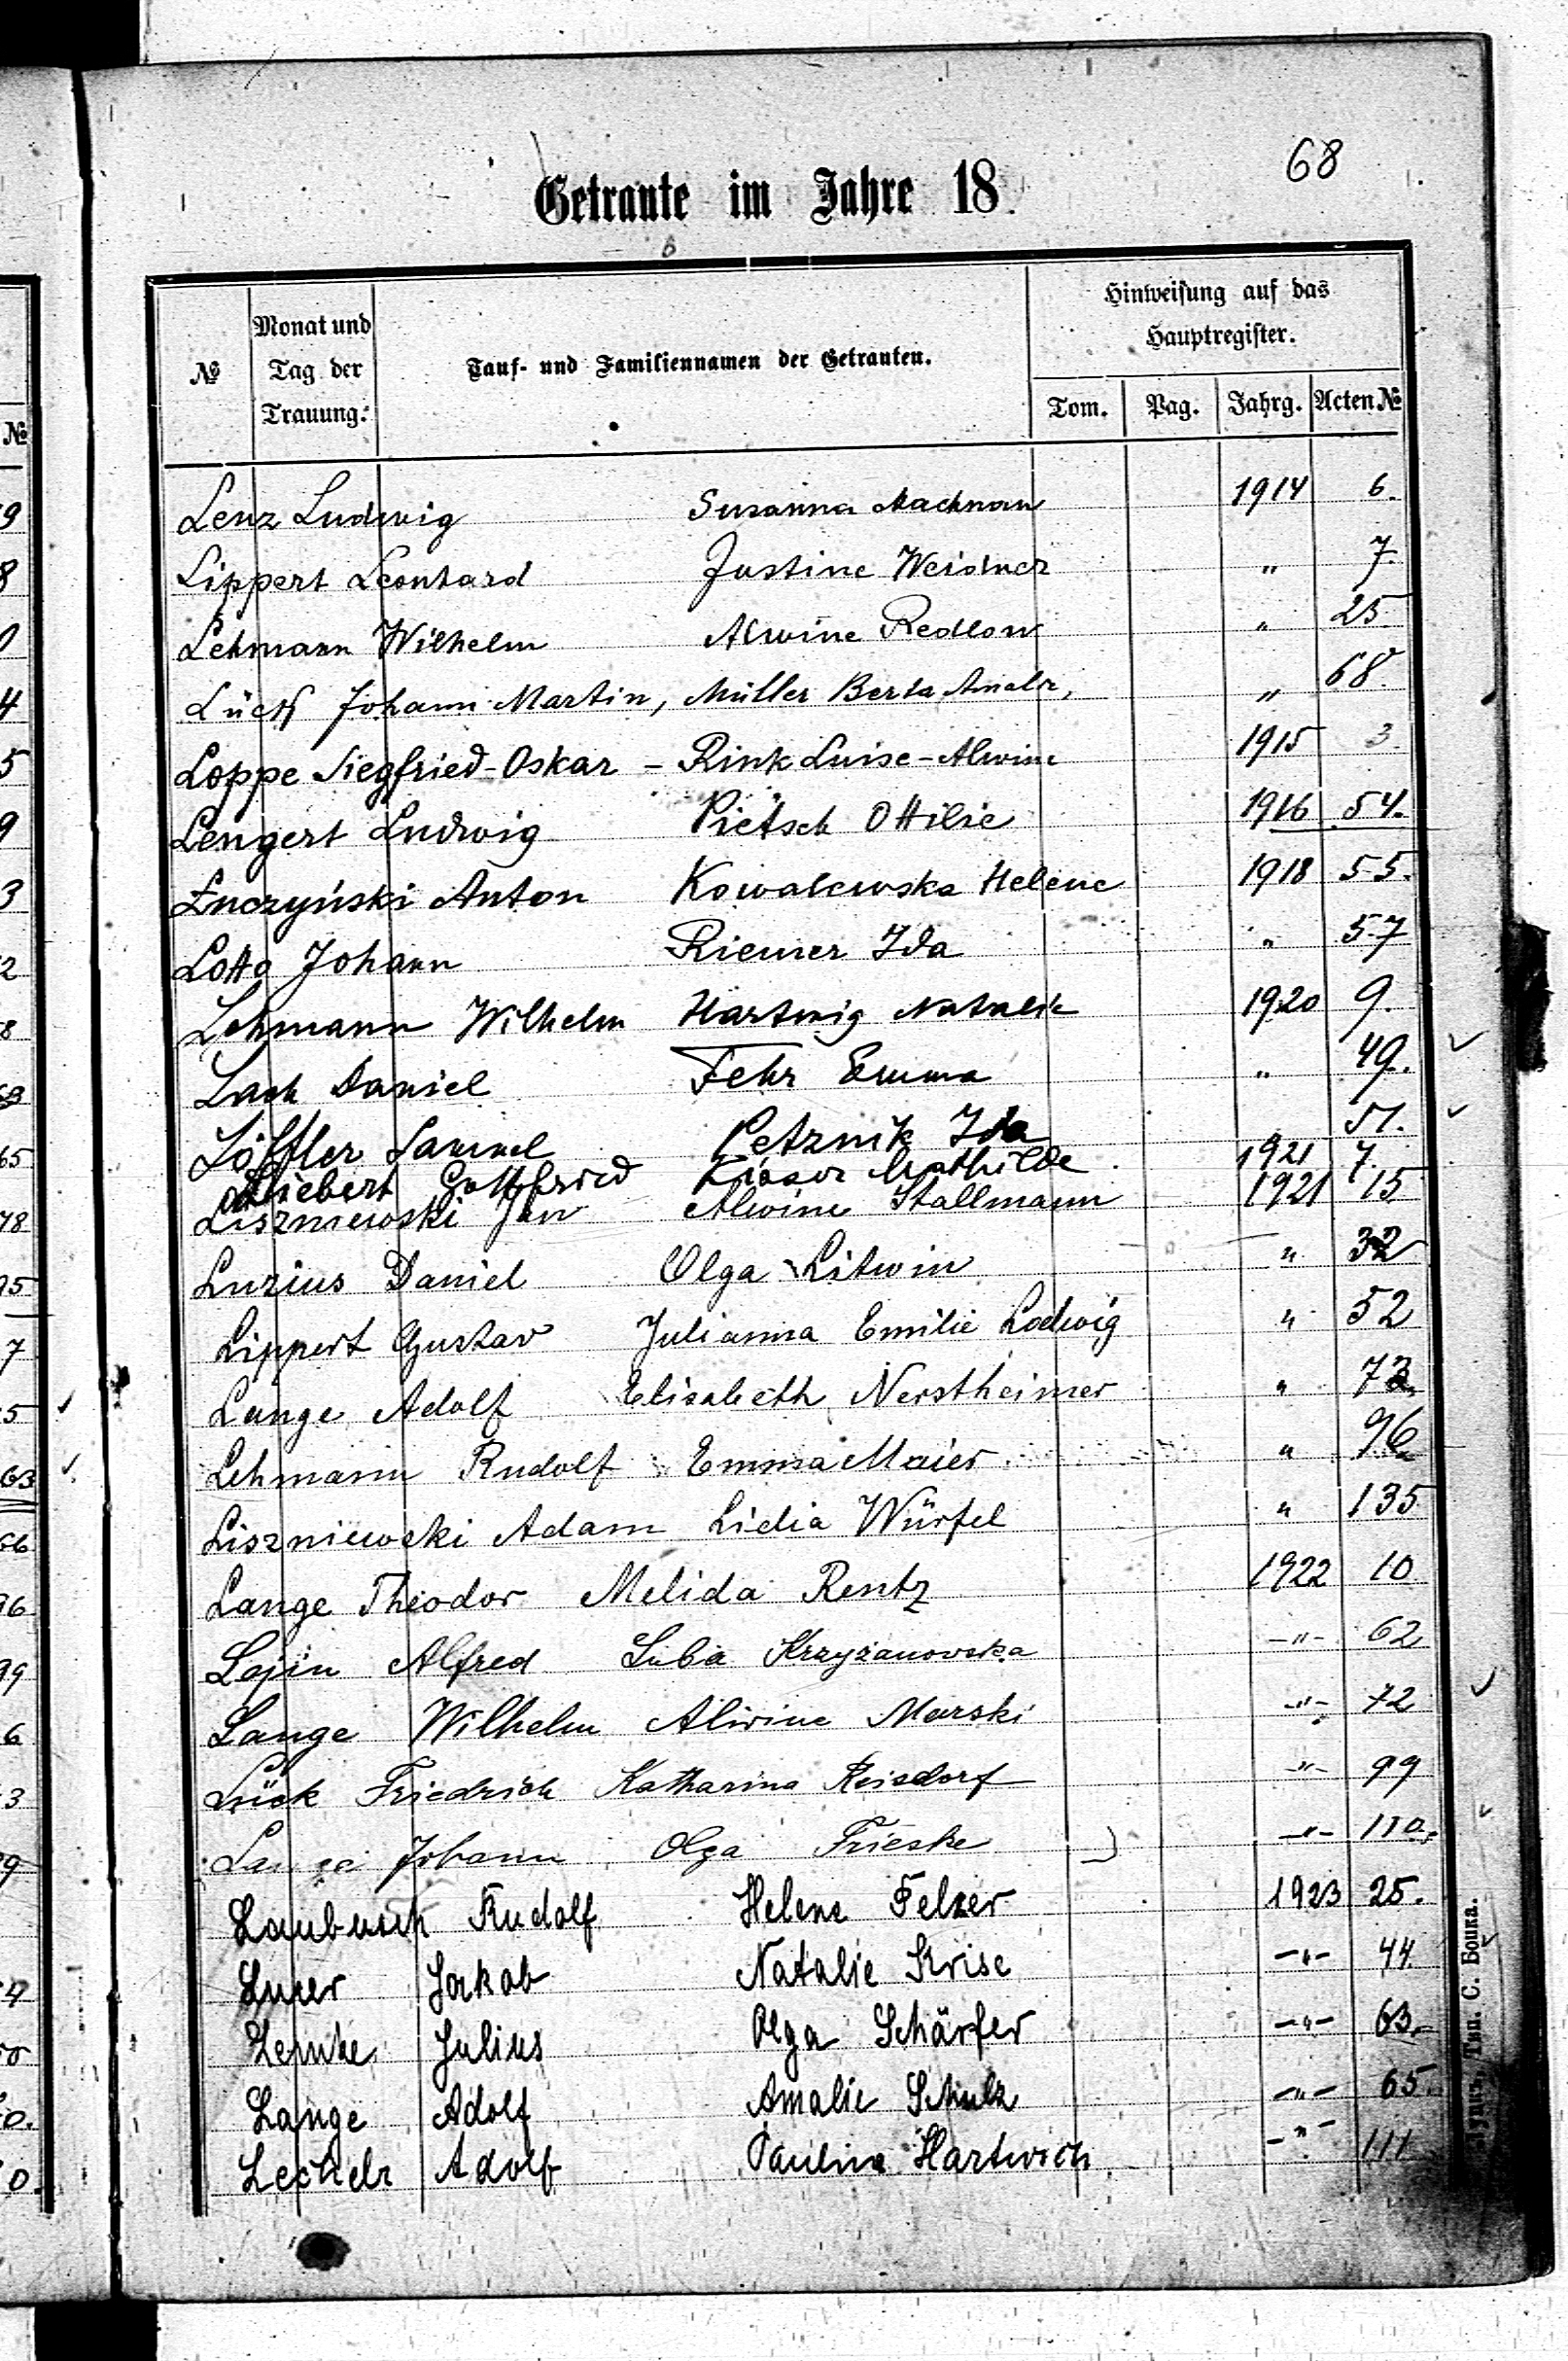 68
Getraute im Jahre 18
№ Monat und Tag der Trauung. Tauf- und Familiennamen der Getrauten. Hinweisung auf das Hauptregister.
Tom. Pag. Jahrg. Acten №
Lenz Ludwig Susanna Machnau 1914 6.
Lippert Leonhard Justine Weidner " 7.
Lehmann Wilhelm Alwine Redlow " 25.
Lück Johann Martin, Müller Berta Amalie, " 68.
Loppe Siegfried-Oskar - Rink Luise-Alwine 1915 3
Lengert Ludwig Pietsch Ottilie 1916 54.
Łuczyński Anton Kowalewska Helene 1918 55.
Lotto Johann Riemer Ida " 57
Lehmann Wilhelm Hartwig Natalie 1920 9.
Lach Daniel Fehr Emma " 49.
Löffler Samuel Petznik Ida 51.
Liebert Gottfried Mathilde 1921 7
Liszniewski Jan Alwine Stallmann 1921 15
Luzius Daniel Olga Litwin " 32
Lippert Gustav Julianna Emilie Lodwig " 52
Lange Adolf Elisabeth Nerstheimer " 73.
Lehmann Rudolf Emma Maier " 96
Liszniewski Adam Lidia Würfel " 135
Lange Theodor Melida Rentz 1922 10
Lapin Alfred Luba Krzyżanowska -"- 62
Lange Wilhelm Alwine Marski -"- 72
Lück Friedrich Katharina Reisdorf -"- 99
Lange Johann Olga Frieske -"- 110.
Laubusch Rudolf Helene Felzer 1923 25.
Luzer Jakob Natalie Krise -"- 44
Lemke Julius Olga Schärfer -"- 63.
Lange Adolf Amalie Schulz -"- 65.
Lechelt Adolf Paulina Hartwich -"- 111
Тип. С. Бошка.